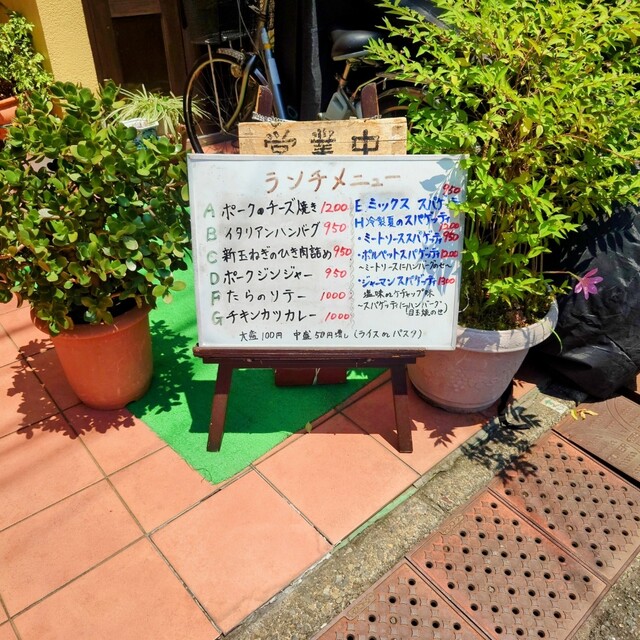 営業中
ランチメニュー
A ポークのチーズ焼き 1200
B イタリアンハンバーグ 950
C 新玉ねぎのひき肉詰め 950
D ポークジンジャー 950
F たらのソテー 1000
G チキンカツカレー 1000
E ミックス スパゲッティ 950
H 冷製夏のスパゲッティ 1200
・ミートソーススパゲッティ 950
・ポルペットスパゲッティ 1200
〜ミートソースにハンバーグのせ〜
・ジャーマンスパゲッティ 1300
塩味orケチャップ味
〜スパゲッティにハンバーグ
目玉焼のせ
大盛100円 中盛50円増し (ライスorパスタ)